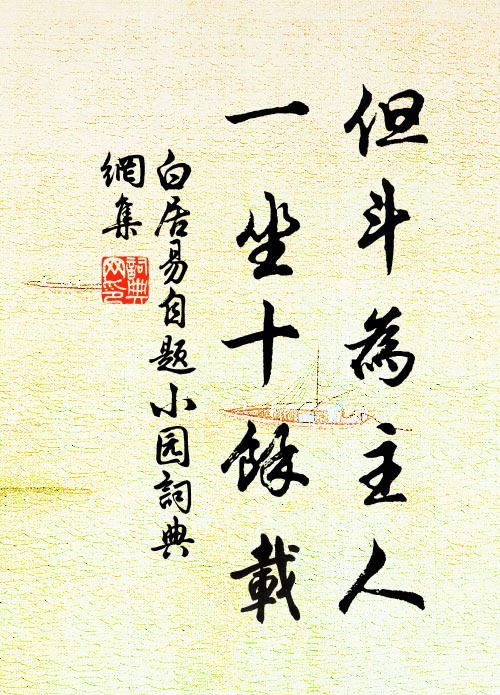 但斗為主人
一坐十餘載
白居易自题小园詞典
網集
詞典網